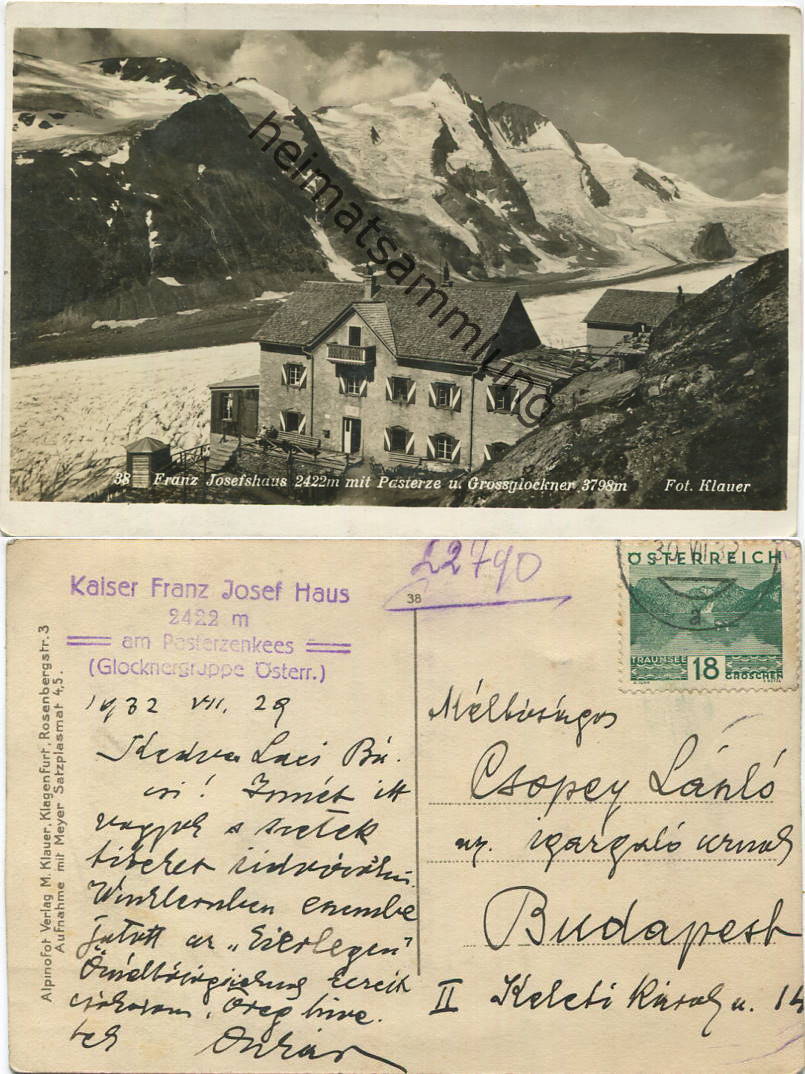 heimatsammlung
38 Franz Josefshaus 2422m mit Pasterze u. Grossglockner 3798m Fot. Klauer
Kaiser Franz Josef Haus
2422 m
am Pasterzenkees
(Glocknergruppe Österr.)
22790
38
ÖSTERREICH
TRAUNSEE 18 GROSCHEN
30.VII.32
Alpinofot Verlag M. Klauer, Klagenfurt, Rosenbergstr. 3
Aufnahme mit Meyer Satzplasmat 4,5.
1932 VII. 29
Kedves Laci Bá-
csi! Ismét itt
vagyok s
Winklernben eszembe
jutott az "Eierlegen"
Öreg híve
Méltóságos
Csopey László
ny. igazgató urnak
Budapest
II Keleti Károly u. 14